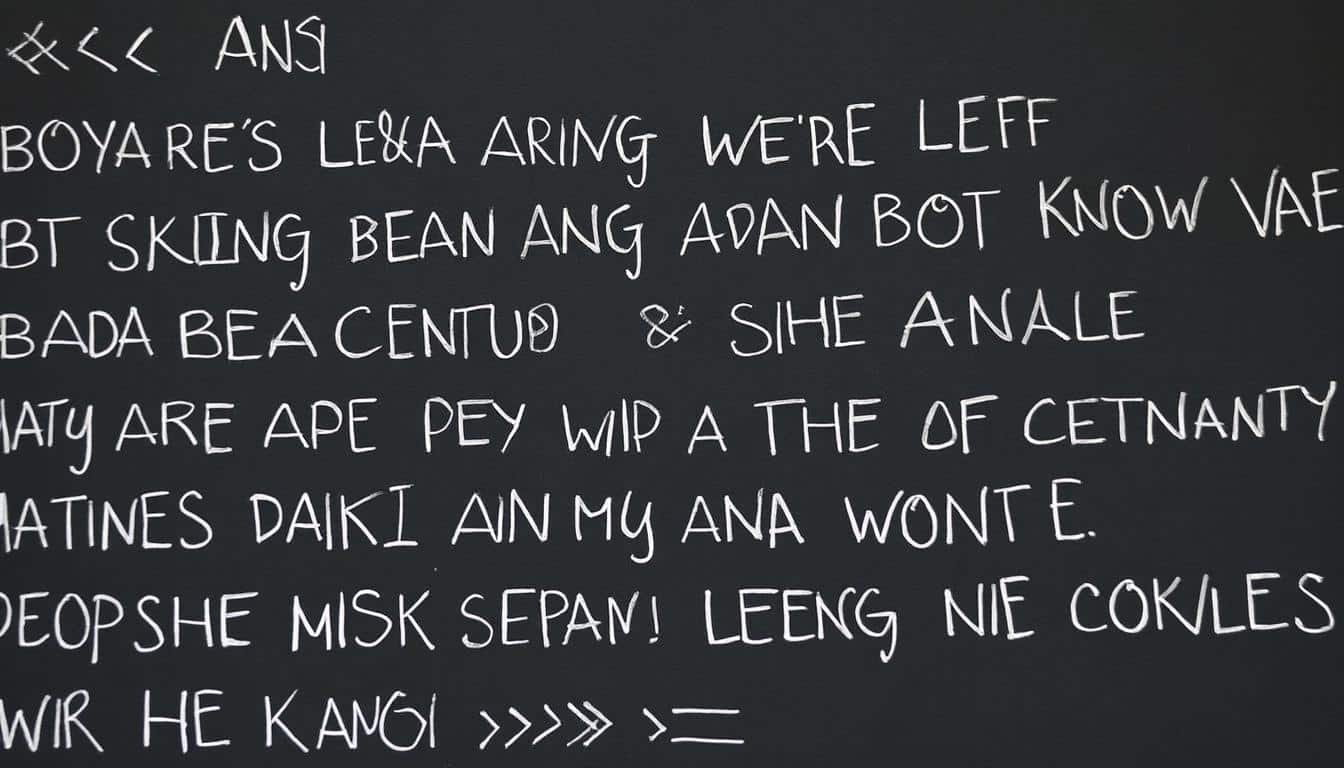 <<< ANS
BOYARE'S LE&A ARING WE'RE LEFF
BT SKIING BEAN ANG ADAN BOT KNOW VAE
BADA BEA CENTUD & SIHE ANALE
ATY ARE APE PEY WIP A THE OF CETNANTY
ATINES DAIKI AIN MY ANA WONT E.
DEOPSHE MISK SEPAN! LEENG NIE COKLES
WIR HE KANGI >>>>> >=